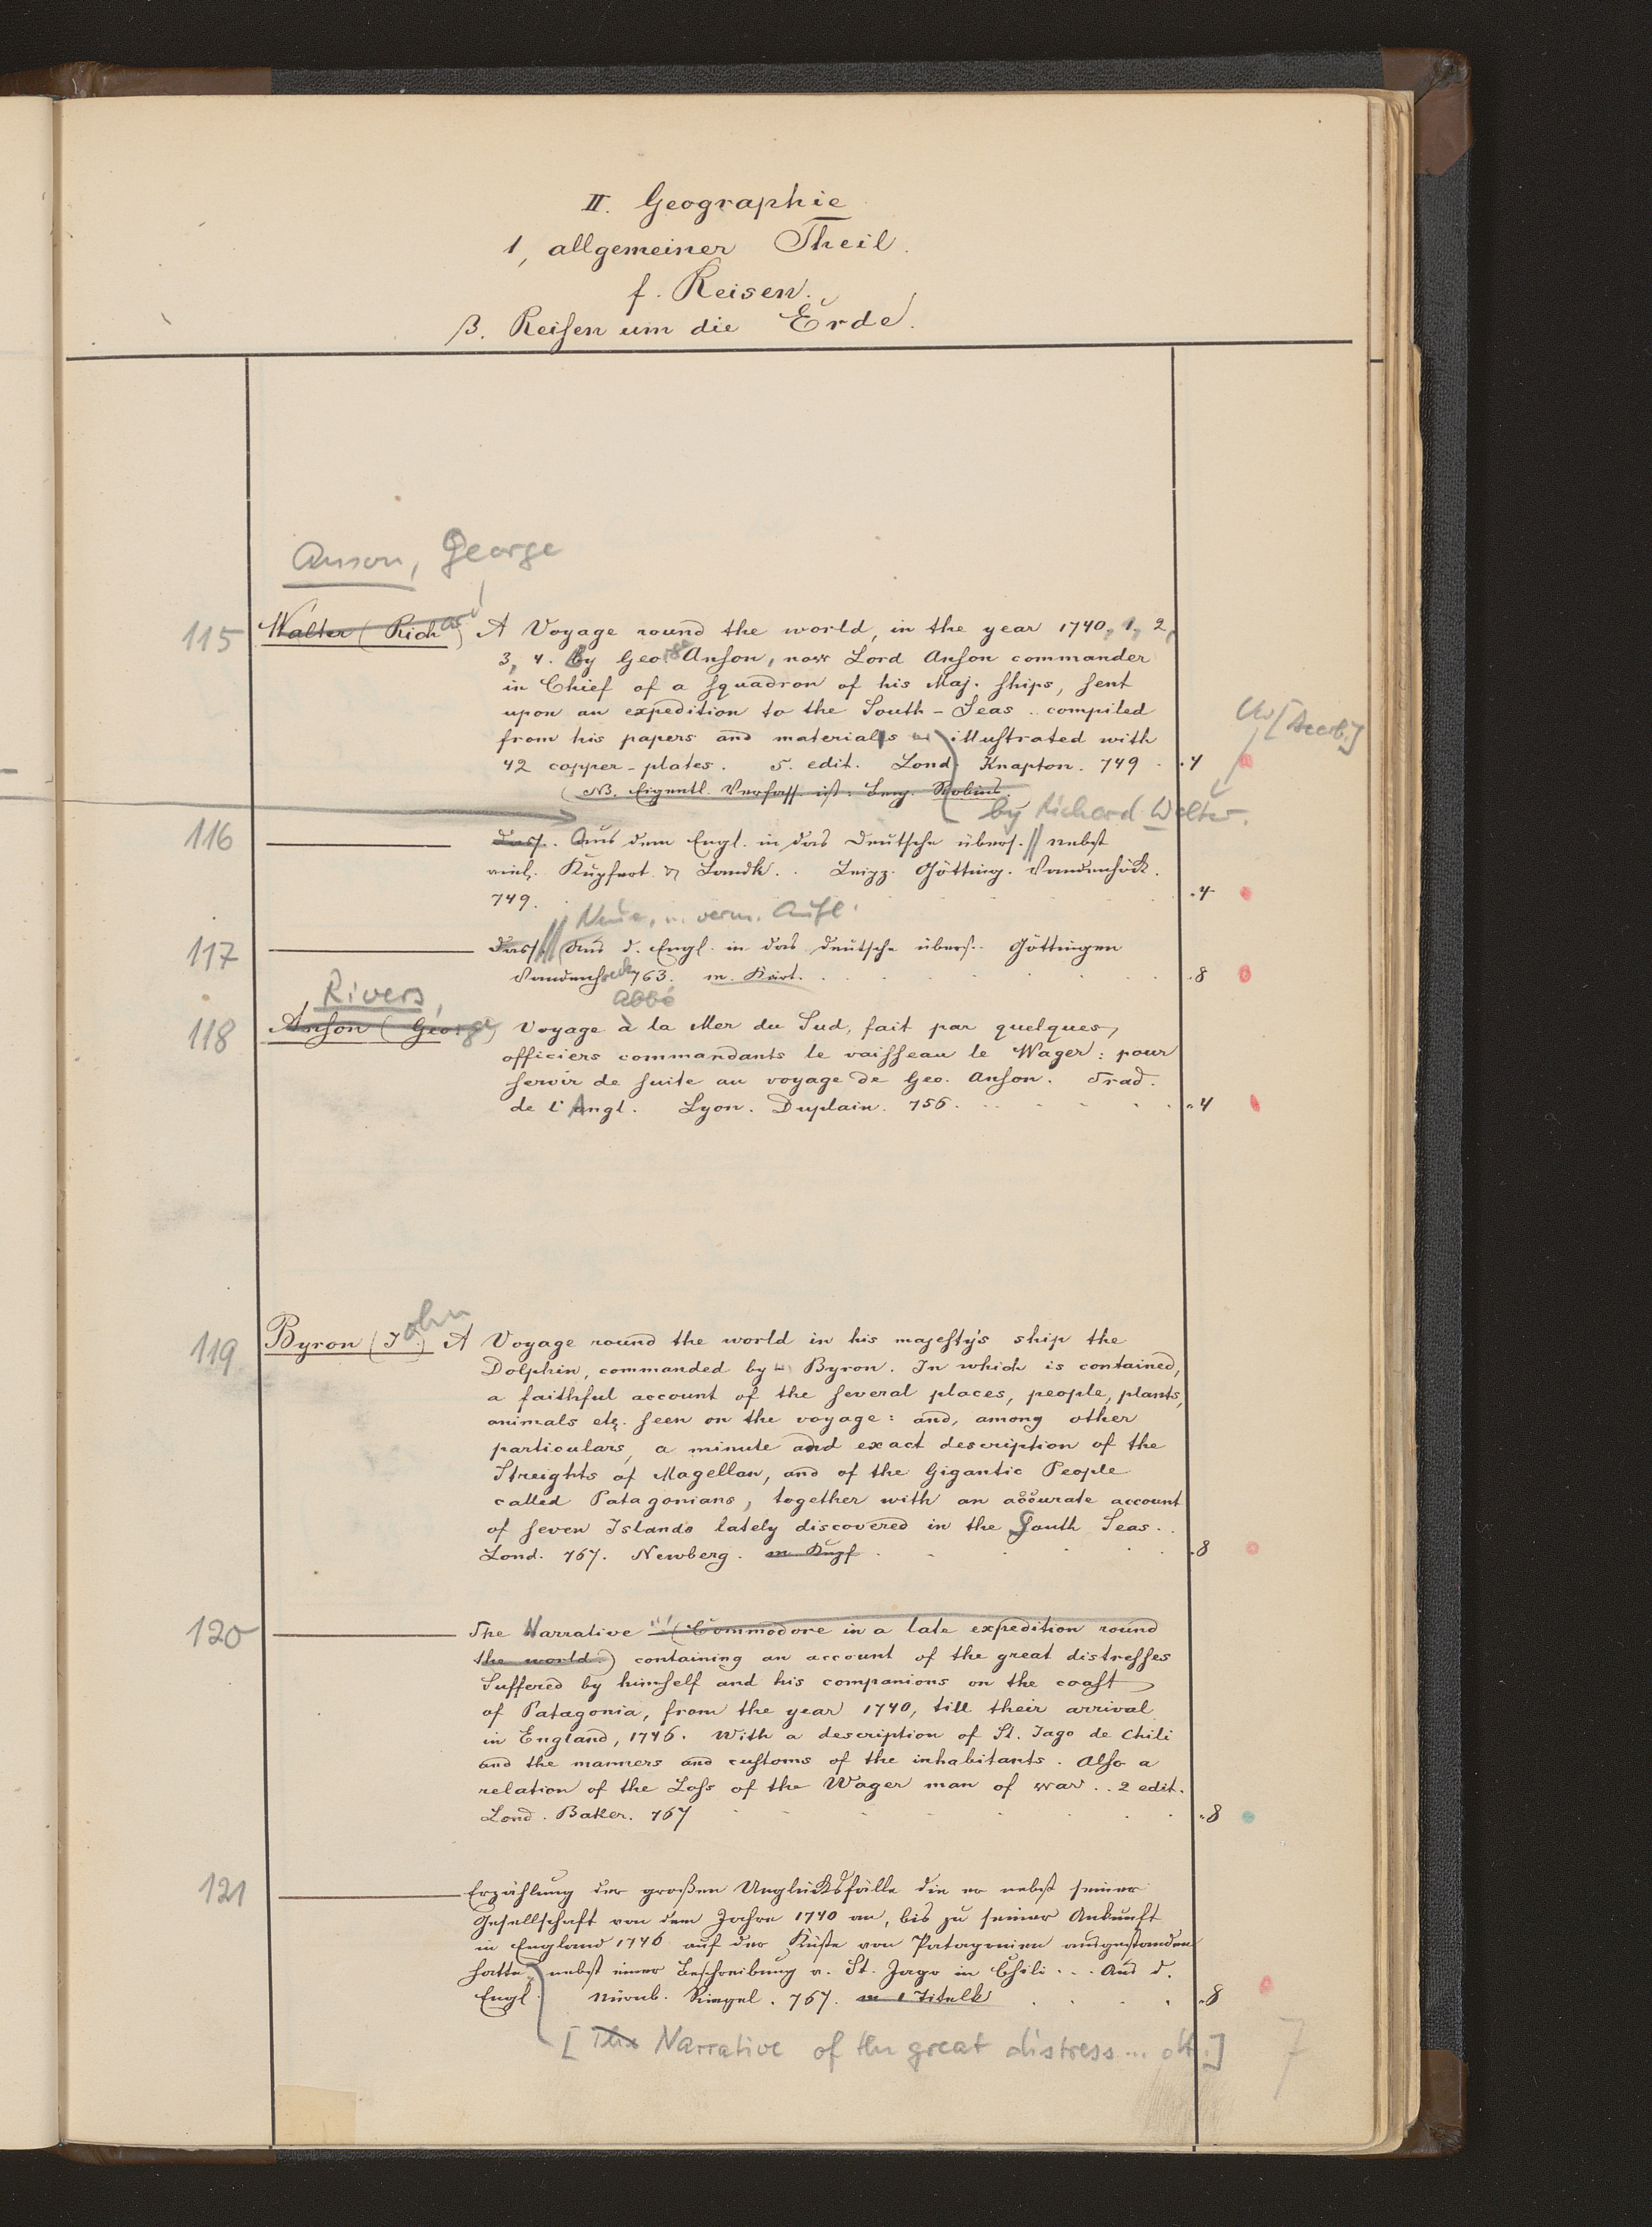 II. Geographie
1, allgemeiner Theil.
f. Reisen.
β. Reisen um die Erde.
Anson, George
115 Walter (Richard) A Voyage round the world, in the year 1740, 1, 2,
3, 4. by George Anson, now Lord Anson commander
in Chief of a squadron of his Maj. ships, sent
upon an expedition to the South-Seas .. compiled
from his papers and materials illustrated with
42 copper-plates. 5. edit. Lond. Knapton. 749 . . 4
(NB. Eigentl. Verfass. ist: Benj. Robins.
by Richard Walter.
116 Dass. Aus dem Engl. in das Deutsche übers. // nebst
viel. Kupfert. & Landk. . Leipz. Götting. Vandenhöck.
749. . 4
Neue, u. verm. Aufl.
117 Dass. // Aus d. Engl. in das Deutsche übers. Göttingen
Vandenhoeck 763. m. Kart. . 8
Rivers, Abbé
118 Anson (George) Voyage à la Mer du Sud, fait par quelques
officiers commandants le vaisseau le Wager: pour
servir de suite au voyage de Geo. Anson. Trad.
de l'Angl. Lyon. Duplain. 756. . . 4
119 Byron (John) A Voyage round the world in his majesty's ship the
Dolphin, commanded by Byron. In which is contained,
a faithful account of the several places, people, plants,
animals etc. seen on the voyage: and, among other
particulars, a minute and exact description of the
Streights of Magellan, and of the Gigantic People
called Patagonians, together with an accurate account
of seven Islands lately discovered in the South Seas. .
Lond. 767. Newberg. m. Kupf . 8
120 The Narrative (Commodore in a late expedition round
the world.) containing an account of the great distresses
Suffered by himself and his companions on the coast
of Patagonia, from the year 1740, till their arrival
in England, 1746. With a description of St. Jago de Chili
and the manners and customs of the inhabitants. Also a
relation of the Loss of the Wager man of war .. 2 edit.
Lond. Baker. 767 . 8
121 Erzählung der großen Unglücksfälle die er nebst seiner
Gesellschaft von dem Jahre 1740 an, bis zu seiner Ankunft
in England 1746 auf der Küste von Patagonien ausgestanden
hatte, nebst einer Beschreibung v. St. Jago in Chili . . . Aus d.
Engl. Nürnb. Riegel. 767. m 1 Titelk . 8
[The Narrative of the great distress ... dt.]
7